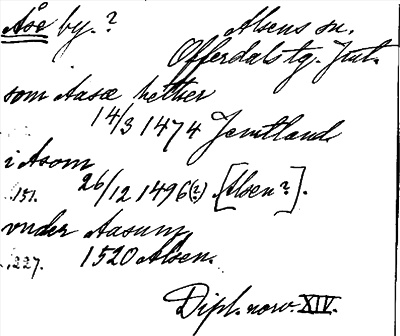 Åse by. ?
Alsens sn.
Offerdals tg. Jmt.
som Aasæ hether
14/3 1474 Jemtland
i Asom
151. 26/12 1496(?) [Alsen?].
vnder Aasum,
227. 1520 Alsen.
Dipl. norv. XIV.